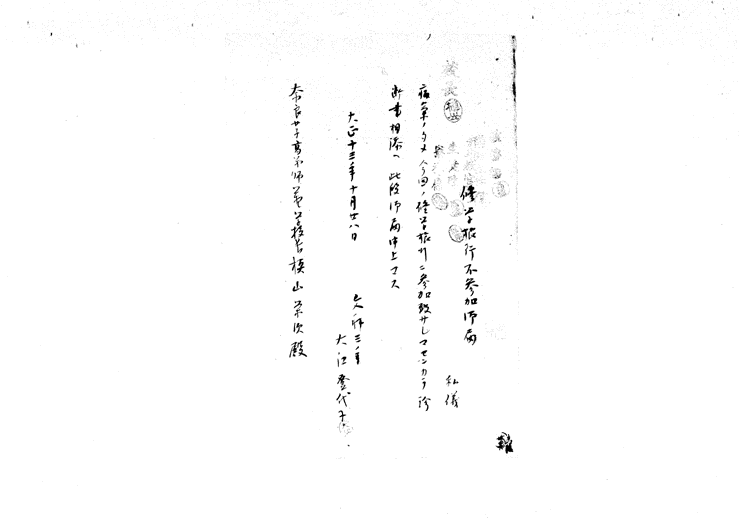 修学旅行不参加御届
私儀
病気ノタメ今回ノ修学旅行ニ参加致サレマセンカラ診
断書相添ヘ此段御届申上マス
大正十三年十月廿八日
大江登代子
奈良女子高等師範学校長槇山栄次殿